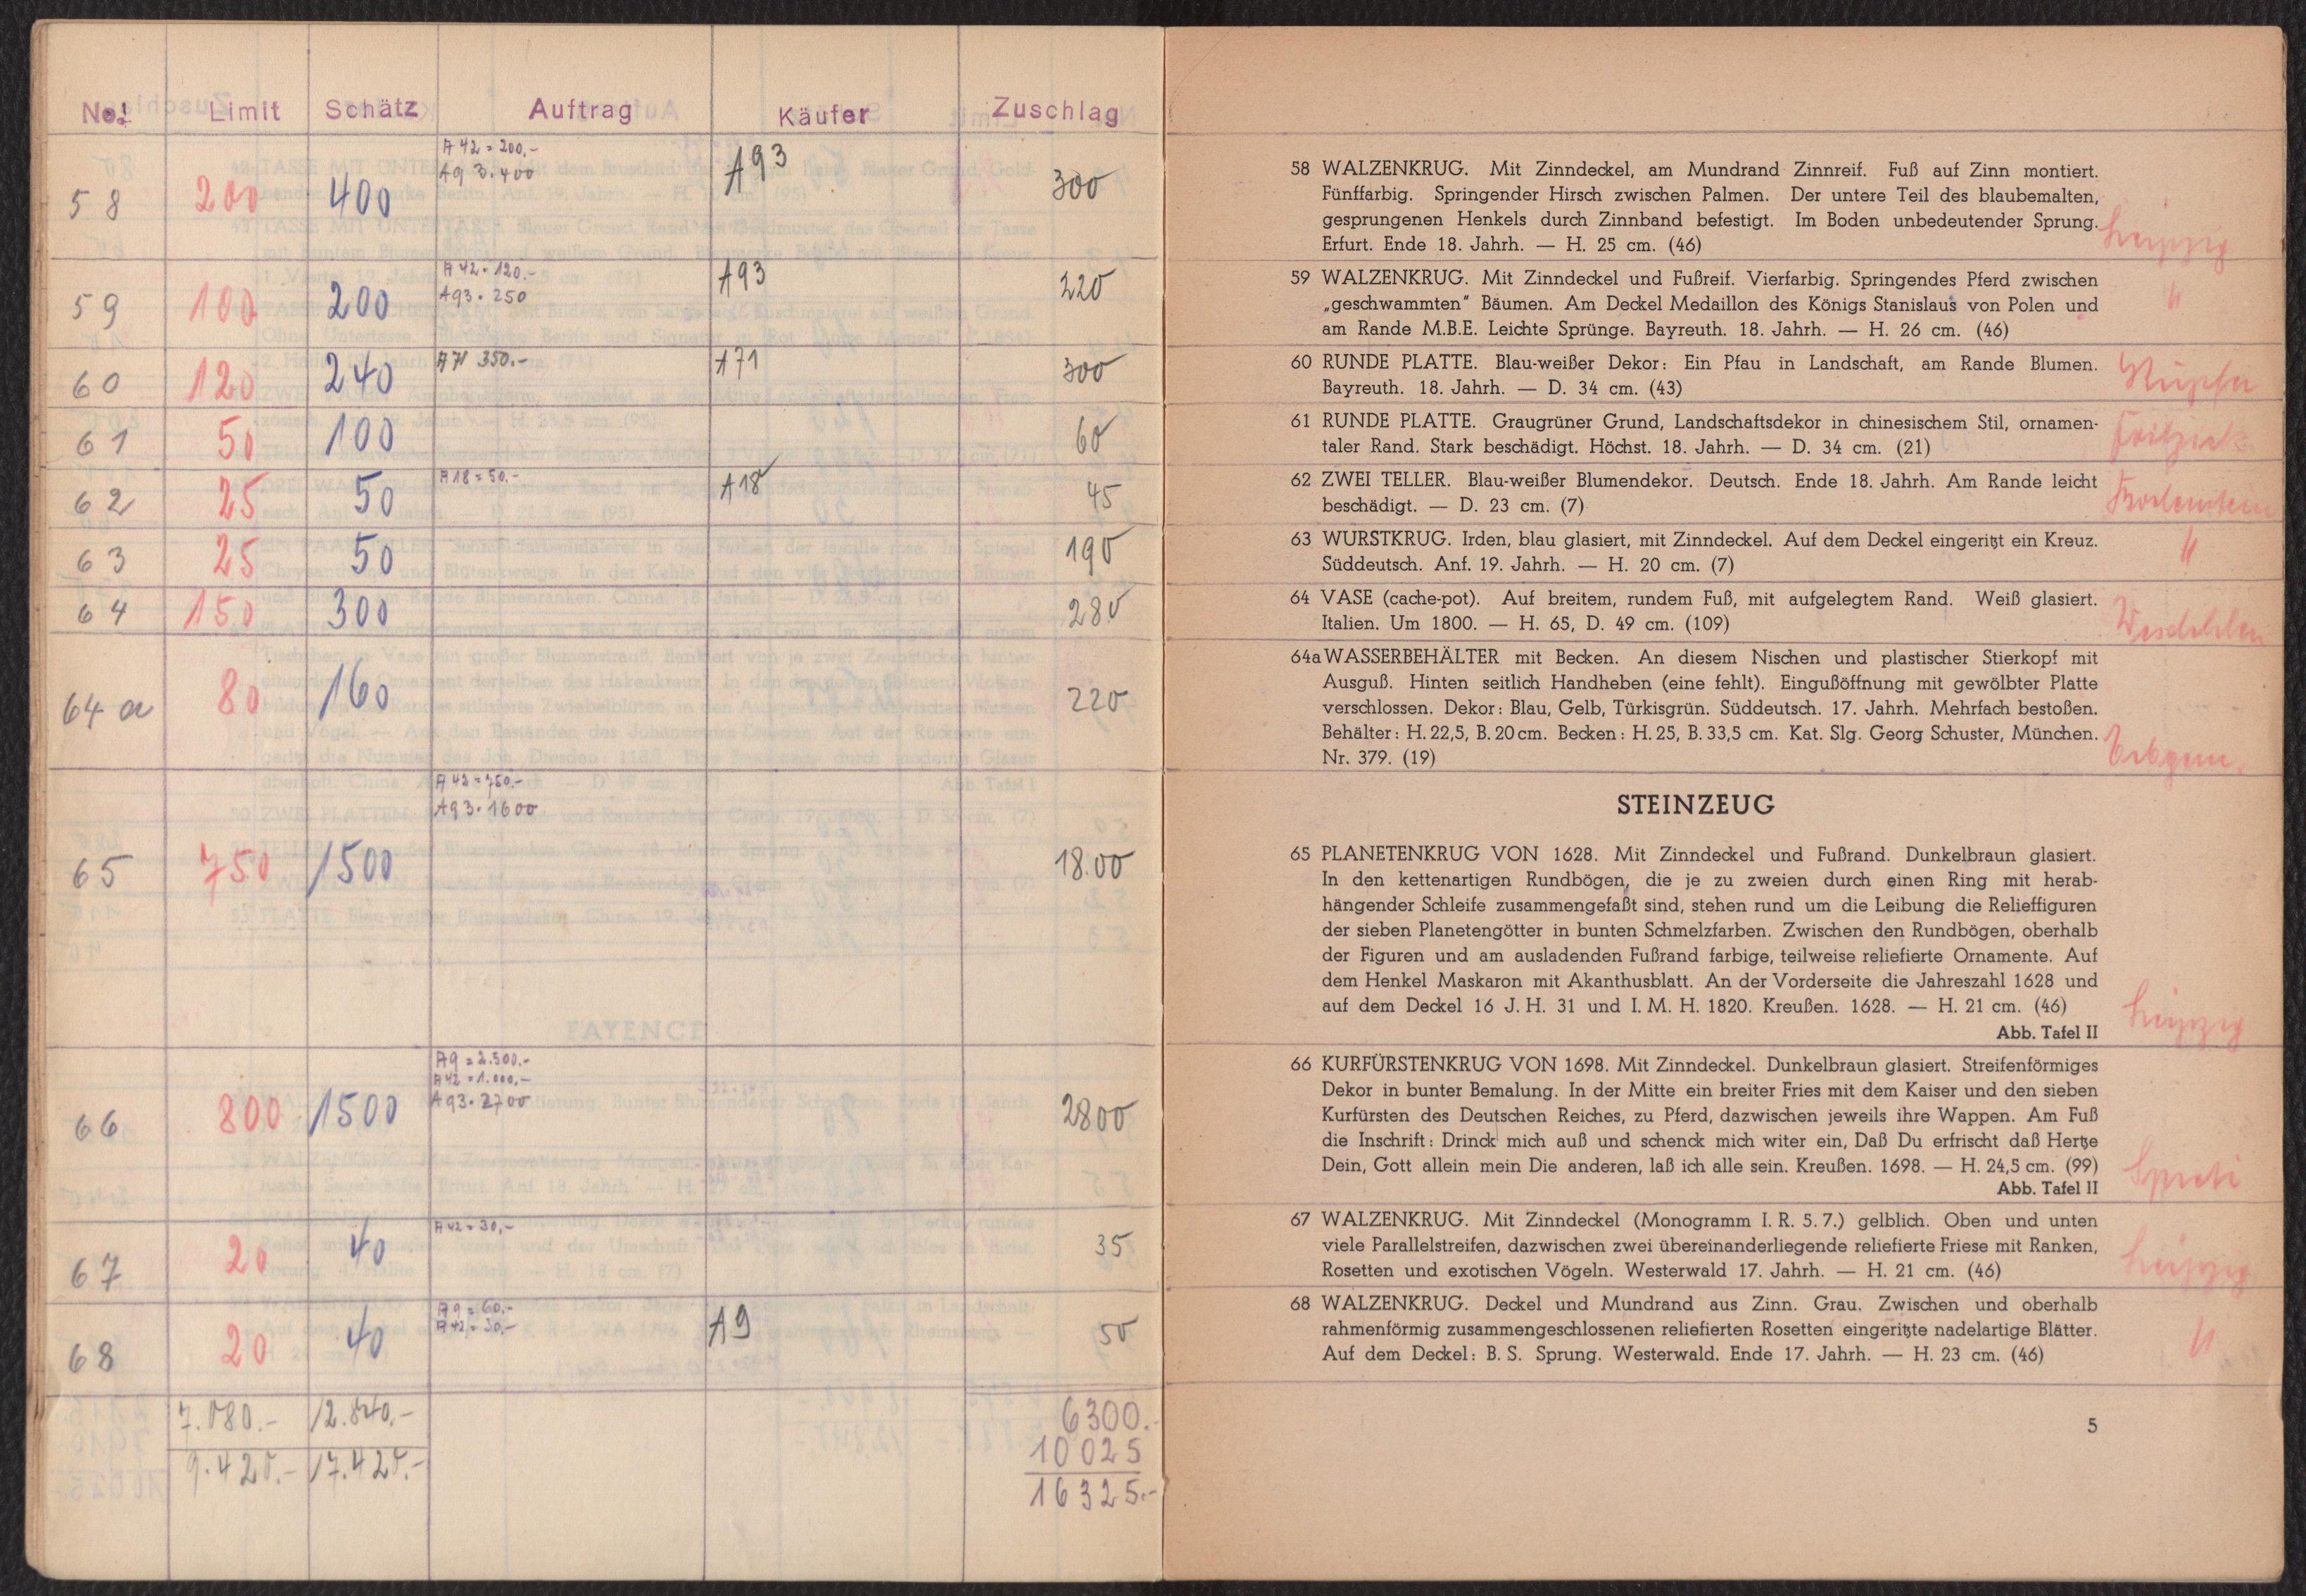 No. Limit Schätz Auftrag Käufer Zuschlag
58 200 400 A 42 = 200.- A93 300
A93. 400
59 100 200 A 42 = 120.- A93 220
A93. 250
60 120 240 A 71 350.- A71 300
61 50 100 60
62 25 50 A 18 = 50.- A18 45
63 25 50 190
64 150 300 280
64 a 80 160 220
65 750 1500 A 42 = 750.- 18.00
A93. 1600
66 800 1500 A9 = 2.500.- 2800
A 42 = 1.000.-
A93. 2700
67 20 40 A 42 = 30.- 35
68 20 40 A9 = 60.- A9 50
A 42 = 30.-
7.080.- 12.840.- 6300.-
10025
9.420.- 17.420.- 16325.-
58 WALZENKRUG. Mit Zinndeckel, am Mundrand Zinnreif. Fuß auf Zinn montiert.
Fünffarbig. Springender Hirsch zwischen Palmen. Der untere Teil des blaubemalten,
gesprungenen Henkels durch Zinnband befestigt. Im Boden unbedeutender Sprung.
Erfurt. Ende 18. Jahrh. — H. 25 cm. (46) Leipzig
59 WALZENKRUG. Mit Zinndeckel und Fußreif. Vierfarbig. Springendes Pferd zwischen
„geschwammten" Bäumen. Am Deckel Medaillon des Königs Stanislaus von Polen und "
am Rande M.B.E. Leichte Sprünge. Bayreuth. 18. Jahrh. — H. 26 cm. (46)
60 RUNDE PLATTE. Blau-weißer Dekor: Ein Pfau in Landschaft, am Rande Blumen.
Bayreuth. 18. Jahrh. — D. 34 cm. (43)
61 RUNDE PLATTE. Graugrüner Grund, Landschaftsdekor in chinesischem Stil, ornamen-
taler Rand. Stark beschädigt. Höchst. 18. Jahrh. — D. 34 cm. (21)
62 ZWEI TELLER. Blau-weißer Blumendekor. Deutsch. Ende 18. Jahrh. Am Rande leicht
beschädigt. — D. 23 cm. (7)
63 WURSTKRUG. Irden, blau glasiert, mit Zinndeckel. Auf dem Deckel eingeritzt ein Kreuz. "
Süddeutsch. Anf. 19. Jahrh. — H. 20 cm. (7)
64 VASE (cache-pot). Auf breitem, rundem Fuß, mit aufgelegtem Rand. Weiß glasiert.
Italien. Um 1800. — H. 65, D. 49 cm. (109)
64a WASSERBEHÄLTER mit Becken. An diesem Nischen und plastischer Stierkopf mit
Ausguß. Hinten seitlich Handheben (eine fehlt). Eingußöffnung mit gewölbter Platte
verschlossen. Dekor: Blau, Gelb, Türkisgrün. Süddeutsch. 17. Jahrh. Mehrfach bestoßen.
Behälter: H. 22,5, B. 20 cm. Becken: H. 25, B. 33,5 cm. Kat. Slg. Georg Schuster, München.
Nr. 379. (19)
STEINZEUG
65 PLANETENKRUG VON 1628. Mit Zinndeckel und Fußrand. Dunkelbraun glasiert.
In den kettenartigen Rundbögen, die je zu zweien durch einen Ring mit herab-
hängender Schleife zusammengefaßt sind, stehen rund um die Leibung die Relieffiguren
der sieben Planetengötter in bunten Schmelzfarben. Zwischen den Rundbögen, oberhalb
der Figuren und am ausladenden Fußrand farbige, teilweise reliefierte Ornamente. Auf
dem Henkel Maskaron mit Akanthusblatt. An der Vorderseite die Jahreszahl 1628 und
auf dem Deckel 16 J. H. 31 und I. M. H. 1820. Kreußen. 1628. — H. 21 cm. (46) Leipzig
Abb. Tafel II
66 KURFÜRSTENKRUG VON 1698. Mit Zinndeckel. Dunkelbraun glasiert. Streifenförmiges
Dekor in bunter Bemalung. In der Mitte ein breiter Fries mit dem Kaiser und den sieben
Kurfürsten des Deutschen Reiches, zu Pferd, dazwischen jeweils ihre Wappen. Am Fuß
die Inschrift: Drinck mich auß und schenck mich witer ein, Daß Du erfrischt daß Hertze
Dein, Gott allein mein Die anderen, laß ich alle sein. Kreußen. 1698. — H. 24,5 cm. (99) Spreti
Abb. Tafel II
67 WALZENKRUG. Mit Zinndeckel (Monogramm I. R. 5. 7.) gelblich. Oben und unten
viele Parallelstreifen, dazwischen zwei übereinanderliegende reliefierte Friese mit Ranken, Leipzig
Rosetten und exotischen Vögeln. Westerwald 17. Jahrh. — H. 21 cm. (46)
68 WALZENKRUG. Deckel und Mundrand aus Zinn. Grau. Zwischen und oberhalb
rahmenförmig zusammengeschlossenen reliefierten Rosetten eingeritzte nadelartige Blätter. "
Auf dem Deckel: B. S. Sprung. Westerwald. Ende 17. Jahrh. — H. 23 cm. (46)
5